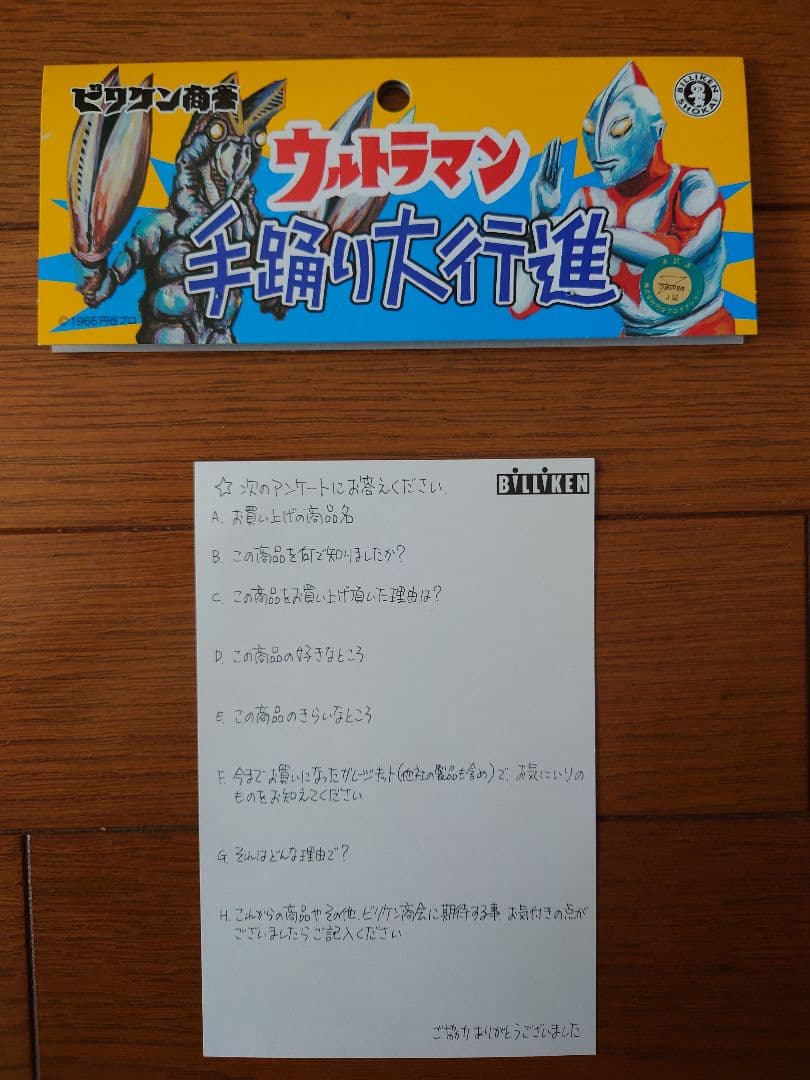 ビリケン商会
BILLIKEN SHOKAI
ウルトラマン
手踊り大行進
©1966円谷プロ
BILLIKEN
☆ 次のアンケートにお答えください.
A. お買い上げの商品名
B. この商品を何で知りましたか?
C. この商品をお買い上げ頂いた理由は?
D. この商品の好きなところ
E. この商品のきらいなところ
F. 今までお買いになったガレージキット(他社の製品も含め)で、お気にいりの
ものをお知えてください
G. それはどんな理由で?
H. これからの商品やその他、ビリケン商会に期待する事、お気付きの点が
ございましたらご記入ください
ご協力ありがとうございました